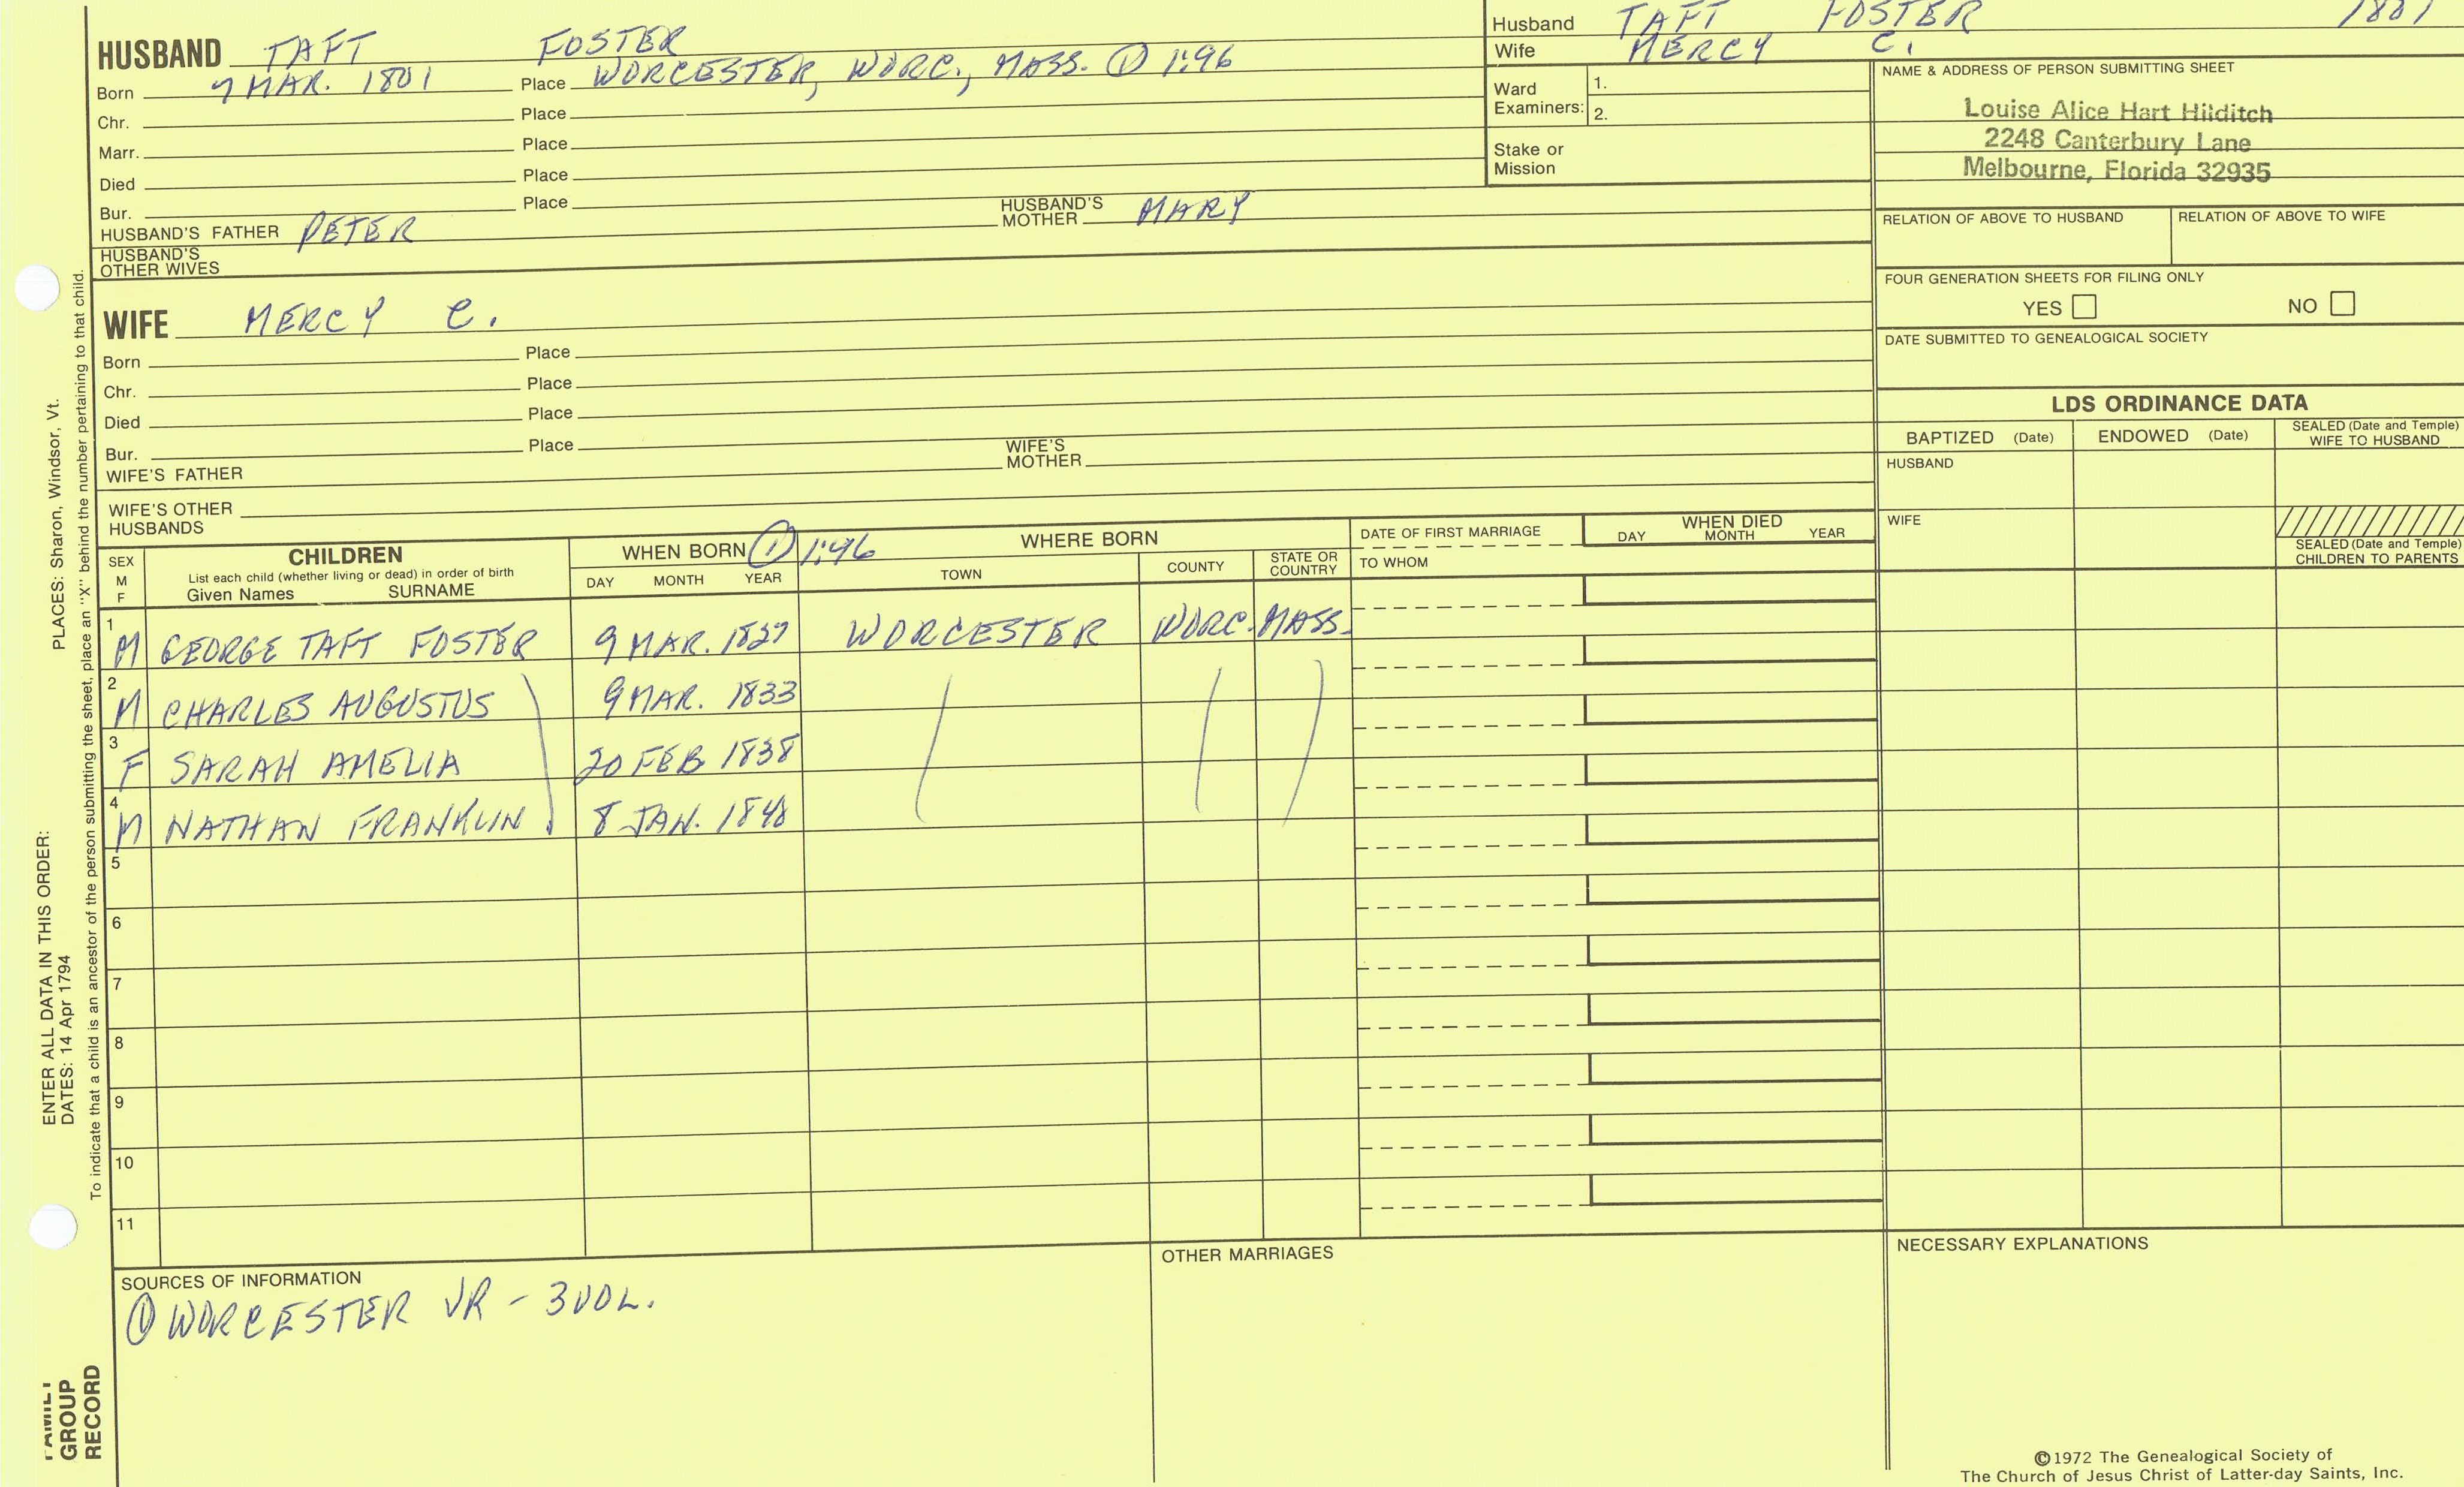 HUSBAND TAFT FOSTER
Born 7 MAR. 1801 Place WORCESTER, WORC., MASS. ① 1:96
Chr. Place
Marr. Place
Died Place
Bur. Place
HUSBAND'S FATHER PETER HUSBAND'S MOTHER MARY
HUSBAND'S OTHER WIVES
Husband TAFT FOSTER 1801
Wife MERCY C.
Ward Examiners: 1.
2.
Stake or Mission
NAME & ADDRESS OF PERSON SUBMITTING SHEET
Louise Alice Hart Hilditch
2248 Canterbury Lane
Melbourne, Florida 32935
RELATION OF ABOVE TO HUSBAND RELATION OF ABOVE TO WIFE
FOUR GENERATION SHEETS FOR FILING ONLY
YES NO
DATE SUBMITTED TO GENEALOGICAL SOCIETY
WIFE MERCY C.
Born Place
Chr. Place
Died Place
Bur. Place
WIFE'S FATHER WIFE'S MOTHER
WIFE'S OTHER HUSBANDS
LDS ORDINANCE DATA
BAPTIZED (Date) ENDOWED (Date) SEALED (Date and Temple) WIFE TO HUSBAND
HUSBAND
WIFE
SEALED (Date and Temple) CHILDREN TO PARENTS
SEX M F
CHILDREN
List each child (whether living or dead) in order of birth
Given Names SURNAME
WHEN BORN ① 1:96
DAY MONTH YEAR
WHERE BORN
TOWN COUNTY STATE OR COUNTRY
DATE OF FIRST MARRIAGE
TO WHOM
WHEN DIED
DAY MONTH YEAR
1 M GEORGE TAFT FOSTER 9 MAR. 1827 WORCESTER WORC. MASS.
2 M CHARLES AUGUSTUS 9 MAR. 1833
3 F SARAH AMELIA 20 FEB 1838
4 M NATHAN FRANKLIN 8 JAN. 1848
5
6
7
8
9
10
11
SOURCES OF INFORMATION
① WORCESTER VR - 3 VOL.
OTHER MARRIAGES
NECESSARY EXPLANATIONS
©1972 The Genealogical Society of
The Church of Jesus Christ of Latter-day Saints, Inc.
ENTER ALL DATA IN THIS ORDER:
DATES: 14 Apr 1794
PLACES: Sharon, Windsor, Vt.
To indicate that a child is an ancestor of the person submitting the sheet, place an "X" behind the number pertaining to that child.
FAMILY
GROUP
RECORD